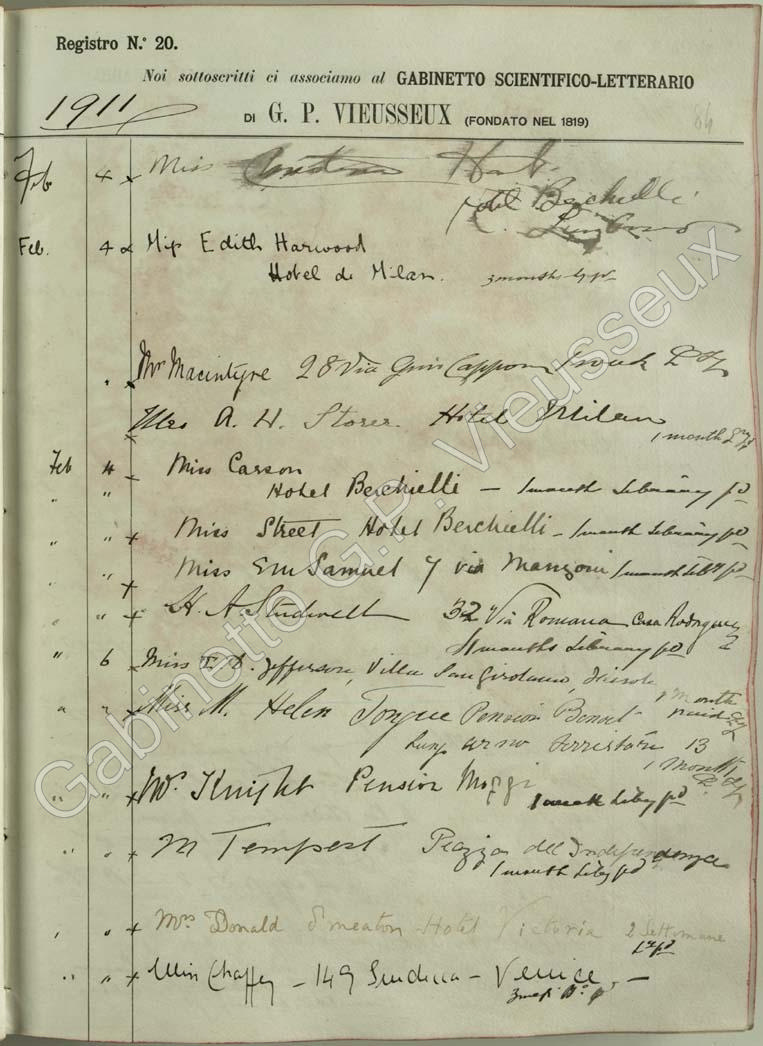 Registro N.º 20.
Noi sottoscritti ci associamo al GABINETTO SCIENTIFICO-LETTERARIO
1911
DI G. P. VIEUSSEUX (FONDATO NEL 1819)
84
Feb 4 x Miss
Hotel Berchielli
Feb. 4 x Miss Edith Harwood
Hotel de Milan. 3 months
" x Mr Macintyre 28 Via Gino Capponi
x Mrs A. H. Storer. Hotel Milan
1 month
Feb 4 x Miss Carson
" " Hotel Berchielli — 1 month Library pd
" " x Miss Street Hotel Berchielli — 1 month Library pd
" " x Miss Samuel 7 via Manzoni 1 month pd
" " x H. A. Studwell 32 Via Romana Casa Rodriguez
months Library pd
" 6 x Miss Jefferson, Villa San Girolamo, Fiesole
1 month
" " x Miss M. Helen Tongue Pension Benoit paid
Lung arno 13
1 month
" " x Mrs Knight Pension Moggi
1 month pd
" " x M Tempest Piazza dell Independenza
1 month pd
" " x Mrs Donald Smeaton Hotel Victoria 2 Settimane
pd
" " x Miss Chaffey — 149 — Venice —
Gabinetto G.P. Vieusseux